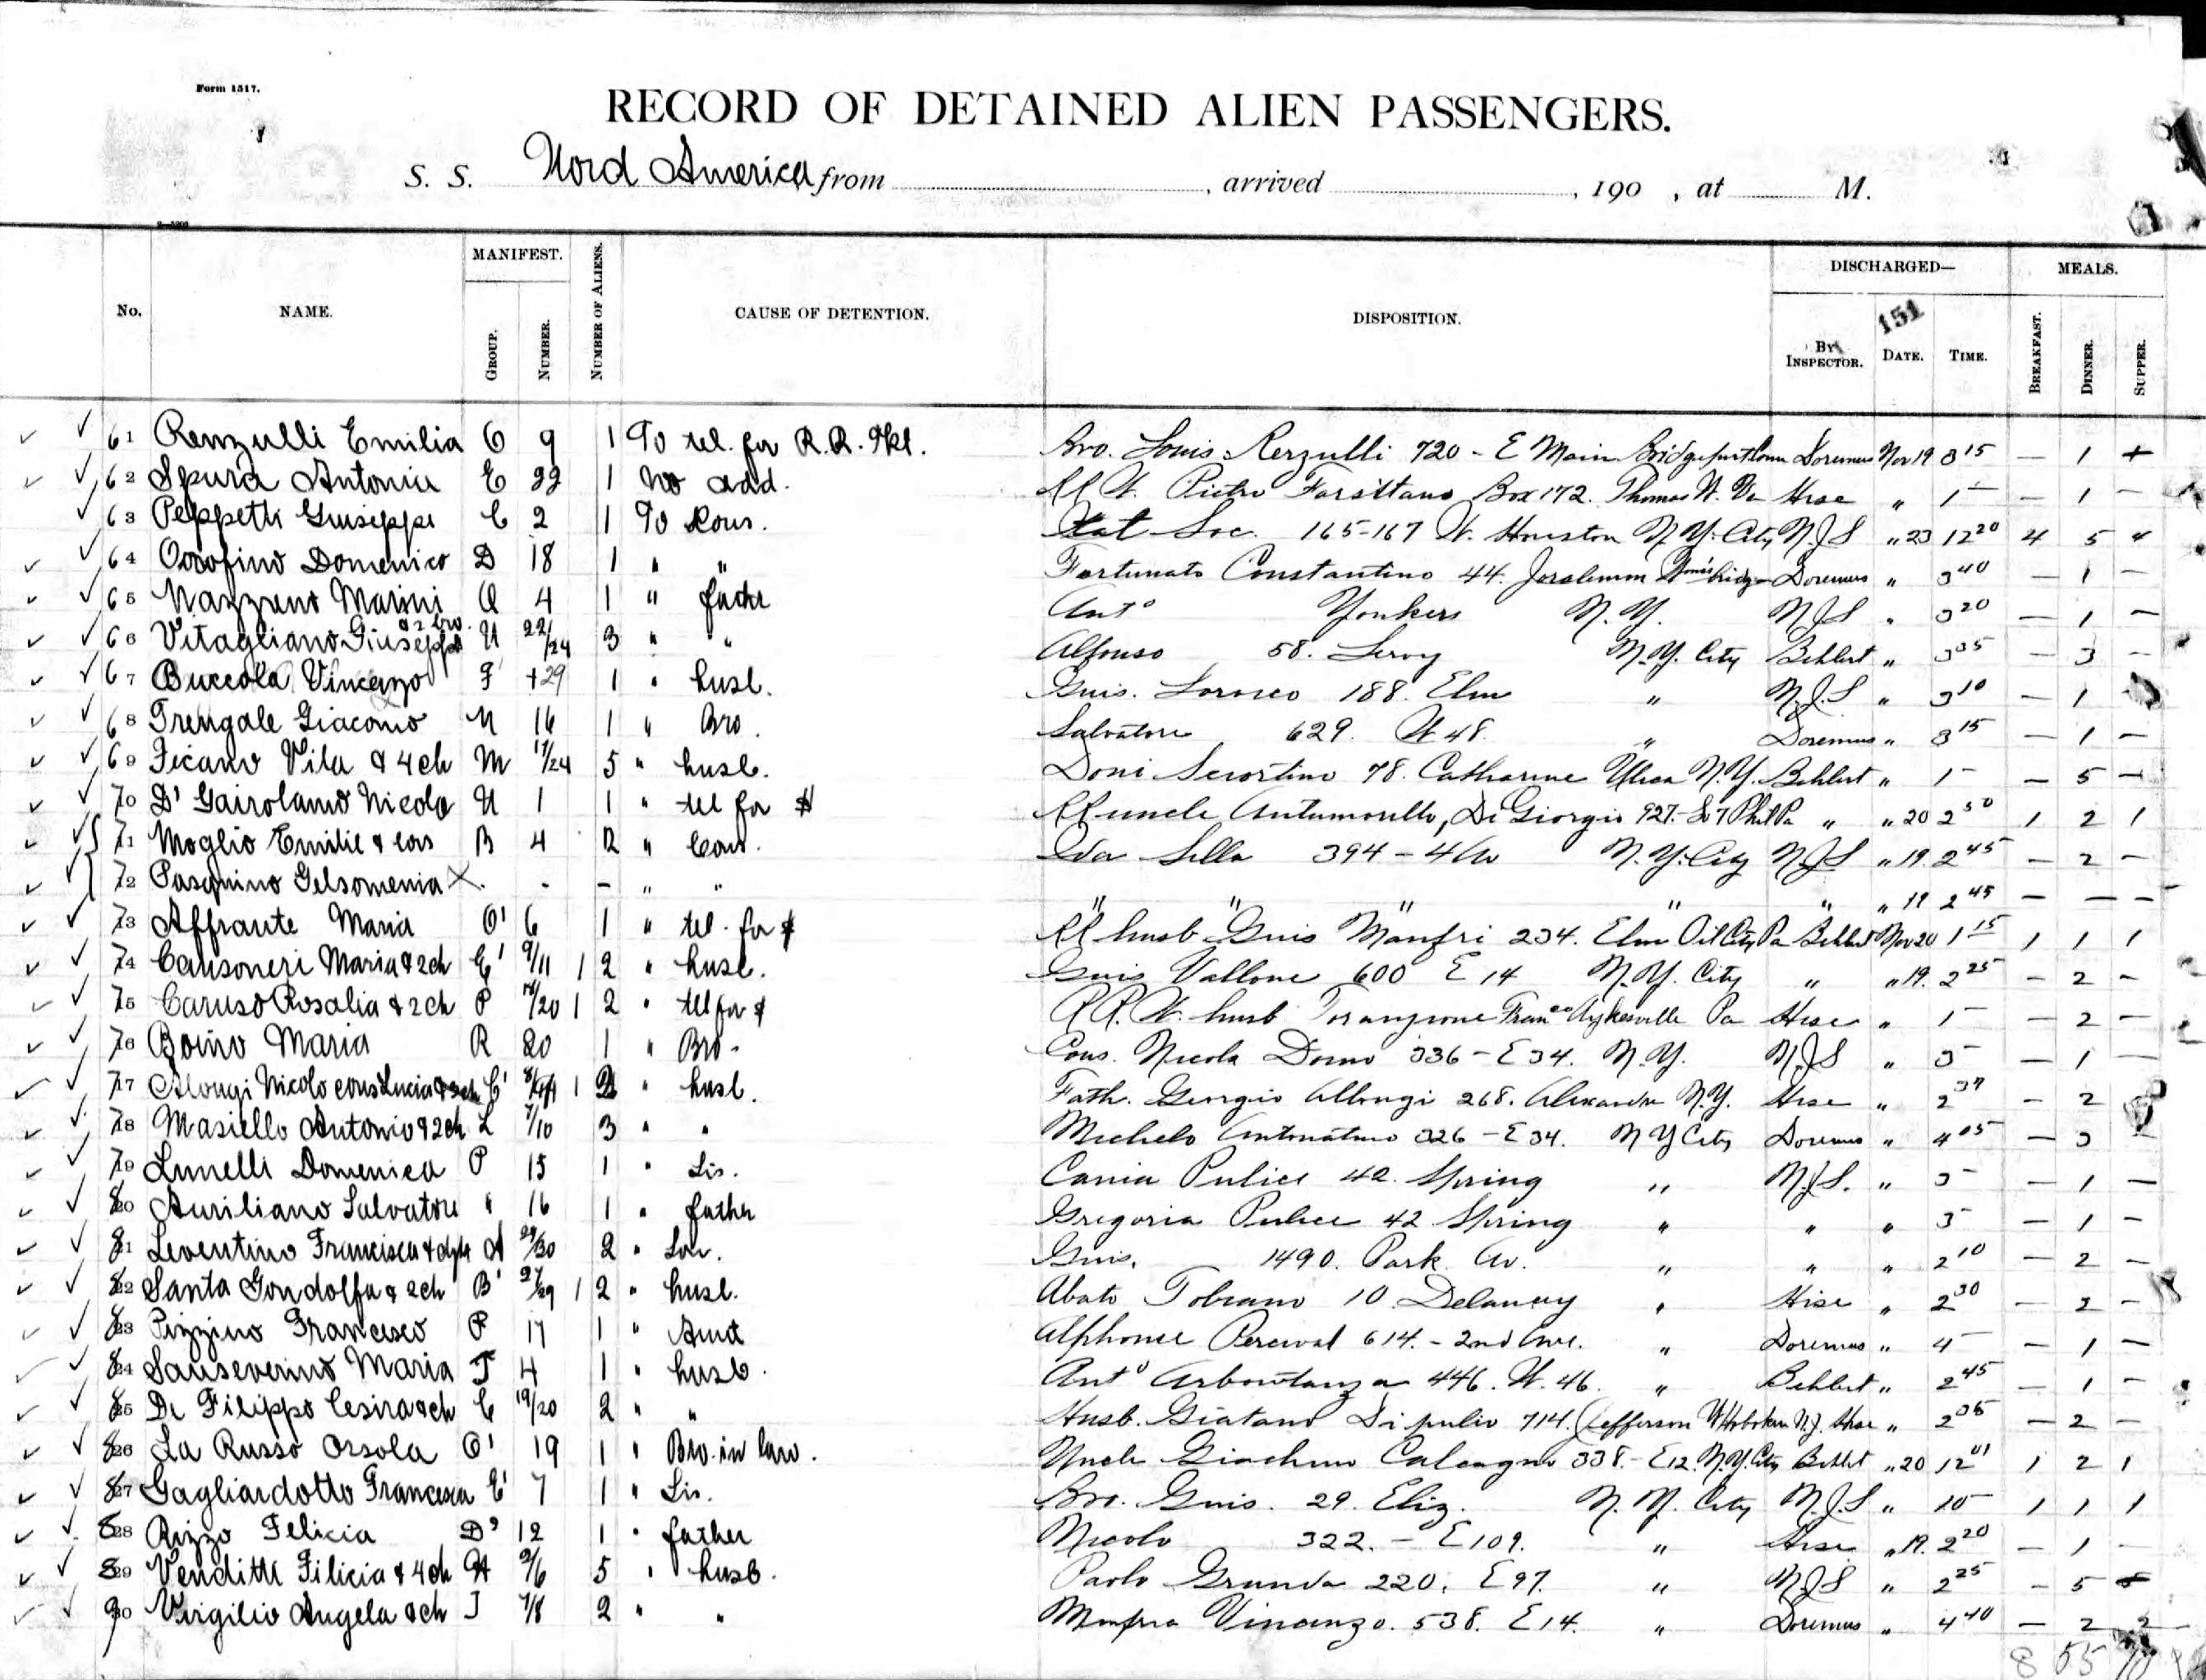 Form 1517.
RECORD OF DETAINED ALIEN PASSENGERS.
S. S. Nord America from , arrived , 190 , at M.
No. NAME. MANIFEST. GROUP. NUMBER. NUMBER OF ALIENS. CAUSE OF DETENTION. DISPOSITION. DISCHARGED— BY INSPECTOR. DATE. TIME. MEALS. BREAKFAST. DINNER. SUPPER.
151
61 Renzulli Emilia 9 1 To tel. for R.R. Tkt. Bro. Louis Renzulli 720 - E Main Bridgeport Conn Doremus Nov 19 3 15 — 1
62 Spura Antonia E 1 No add. Pietro Box 172. Thomas W. Va Hise " 1 — — 1 —
63 Peppetti Giuseppe C 2 1 To Cous. Soc. 165-167 W. Houston N.Y. City N.J.S " 23 12 20 4 5 4
64 Orofino Domenico D 18 1 " " Fortunato Constantino 44. Doremus " 3 40 — 1 —
65 Nazzeno Marini Q 4 1 " father Anto Yonkers N.Y. N.J.S " 3 20 — 1 —
66 Vitagliano Giuseppe & 2 bro. U 22/24 3 " " Alfonso 58. Leroy N.Y. City Behlert " 3 35 — 3 —
67 Buccola Vincenzo F 29 1 " husb. Guis. Lorosco 188. Elm " N.J.S " 3 10 — 1
68 Trengale Giacomo N 16 1 " Bro. Salvatore 629. W 48. " Doremus " 3 15 — 1 —
69 Ficano Vita & 4 ch M 5 " husb. 78. Catharine Utica N.Y. Behlert " 1 — — 5 —
70 D' Gairolamo Nicola U 1 1 " tel for $ uncle Di Giorgio 927. Phil Pa " " 20 2 50 1 2 1
71 Moglio Emilie & cous B 4 2 " Cous. Silla 394 - 4 Av N.Y. City N.J.S " 19. 2 45 — 2 —
72 Pasquino Gelsomenia X. - — " " " " " " " " 19 2 45 — — —
73 Affrante Maria O' 6 1 " tel. for $ husb Guis Manfri 234. Elm Oil City Pa Behlert Nov 20 1 15 1 1 1
74 Cansoneri Maria & 2 ch 9/11 1 2 " husb. Guis Vallone 600 E 14 N.Y. City " " 19. 2 25 — 2 —
75 Caruso Rosalia & 2 ch P 1 2 " tel for $ husb Sykesville Pa Hise " 1 — — 2 —
76 Boino Maria R 20 1 " Bro. Cous. Nicola 336 - E 34. N.Y. N.J.S " 3 — — 1 —
77 Alongi Nicolo cous Lucia & 2 ch 1 2 " husb. Fath. Georgio Allongi 268. N.Y. Hise " 2 — 2
78 Masiello Antonio & 2 ch L 3 " " Michele 326 - E 34. N Y City Doremus " 4 05 — 3
79 Lunelli Domenica P 15 1 " Sis. Cania Pulice 42. Spring " N.J.S. " 3 — — 1 —
80 Auriliano Salvatore " 16 1 " father Gregoria Pulice 42 Spring " " " 3 — — 1 —
81 Leventino Francisca & dgtr A 29/30 2 " Son. Guis. 1490. Park Av. " " " 2 10 — 2 —
82 Santa Gondolfa & 2 ch B' 27/29 1 2 " husb. Abato 10 Delancey " Hise " 2 30 — 2 —
83 Pizzino Francesco P 17 1 " Aunt Alphonse Percival 614. - 2nd Ave. " Doremus " 4 — — 1 —
84 Sanseverino Maria 4 1 " husb. Anto 446. W. 46. " Behlert " 2 45 — 1 —
85 De Filippo Cesira & ch C 19/20 2 " " Husb. 714. Jefferson W Hoboken N.J. Hise " 2 35 — 2 —
86 La Russo Orsola O' 19 1 " Bro. in law. Uncle Calcagno 338. - E 12. N.Y. City Behlert " 20 12 1 2 1
87 Gagliardotto Francesca 7 1 " Sis. Bro. Guis. 29. Eliz. N. Y. City N.J.S " 10 — 1 1 1
88 Rizzo Felicia D' 12 1 " father Nicolo 322. - E 109. " Hise " 19. 2 20 — 1 —
89 Venditti Filicia & 4 ch 2/6 5 " husb. Paolo 220. E 97. " N.J.S " 2 25 — 5
90 Virgilio Angela & ch 7/8 2 " " Vincenzo. 538. E 14. " Doremus " 4 40 — 2 2
8 55